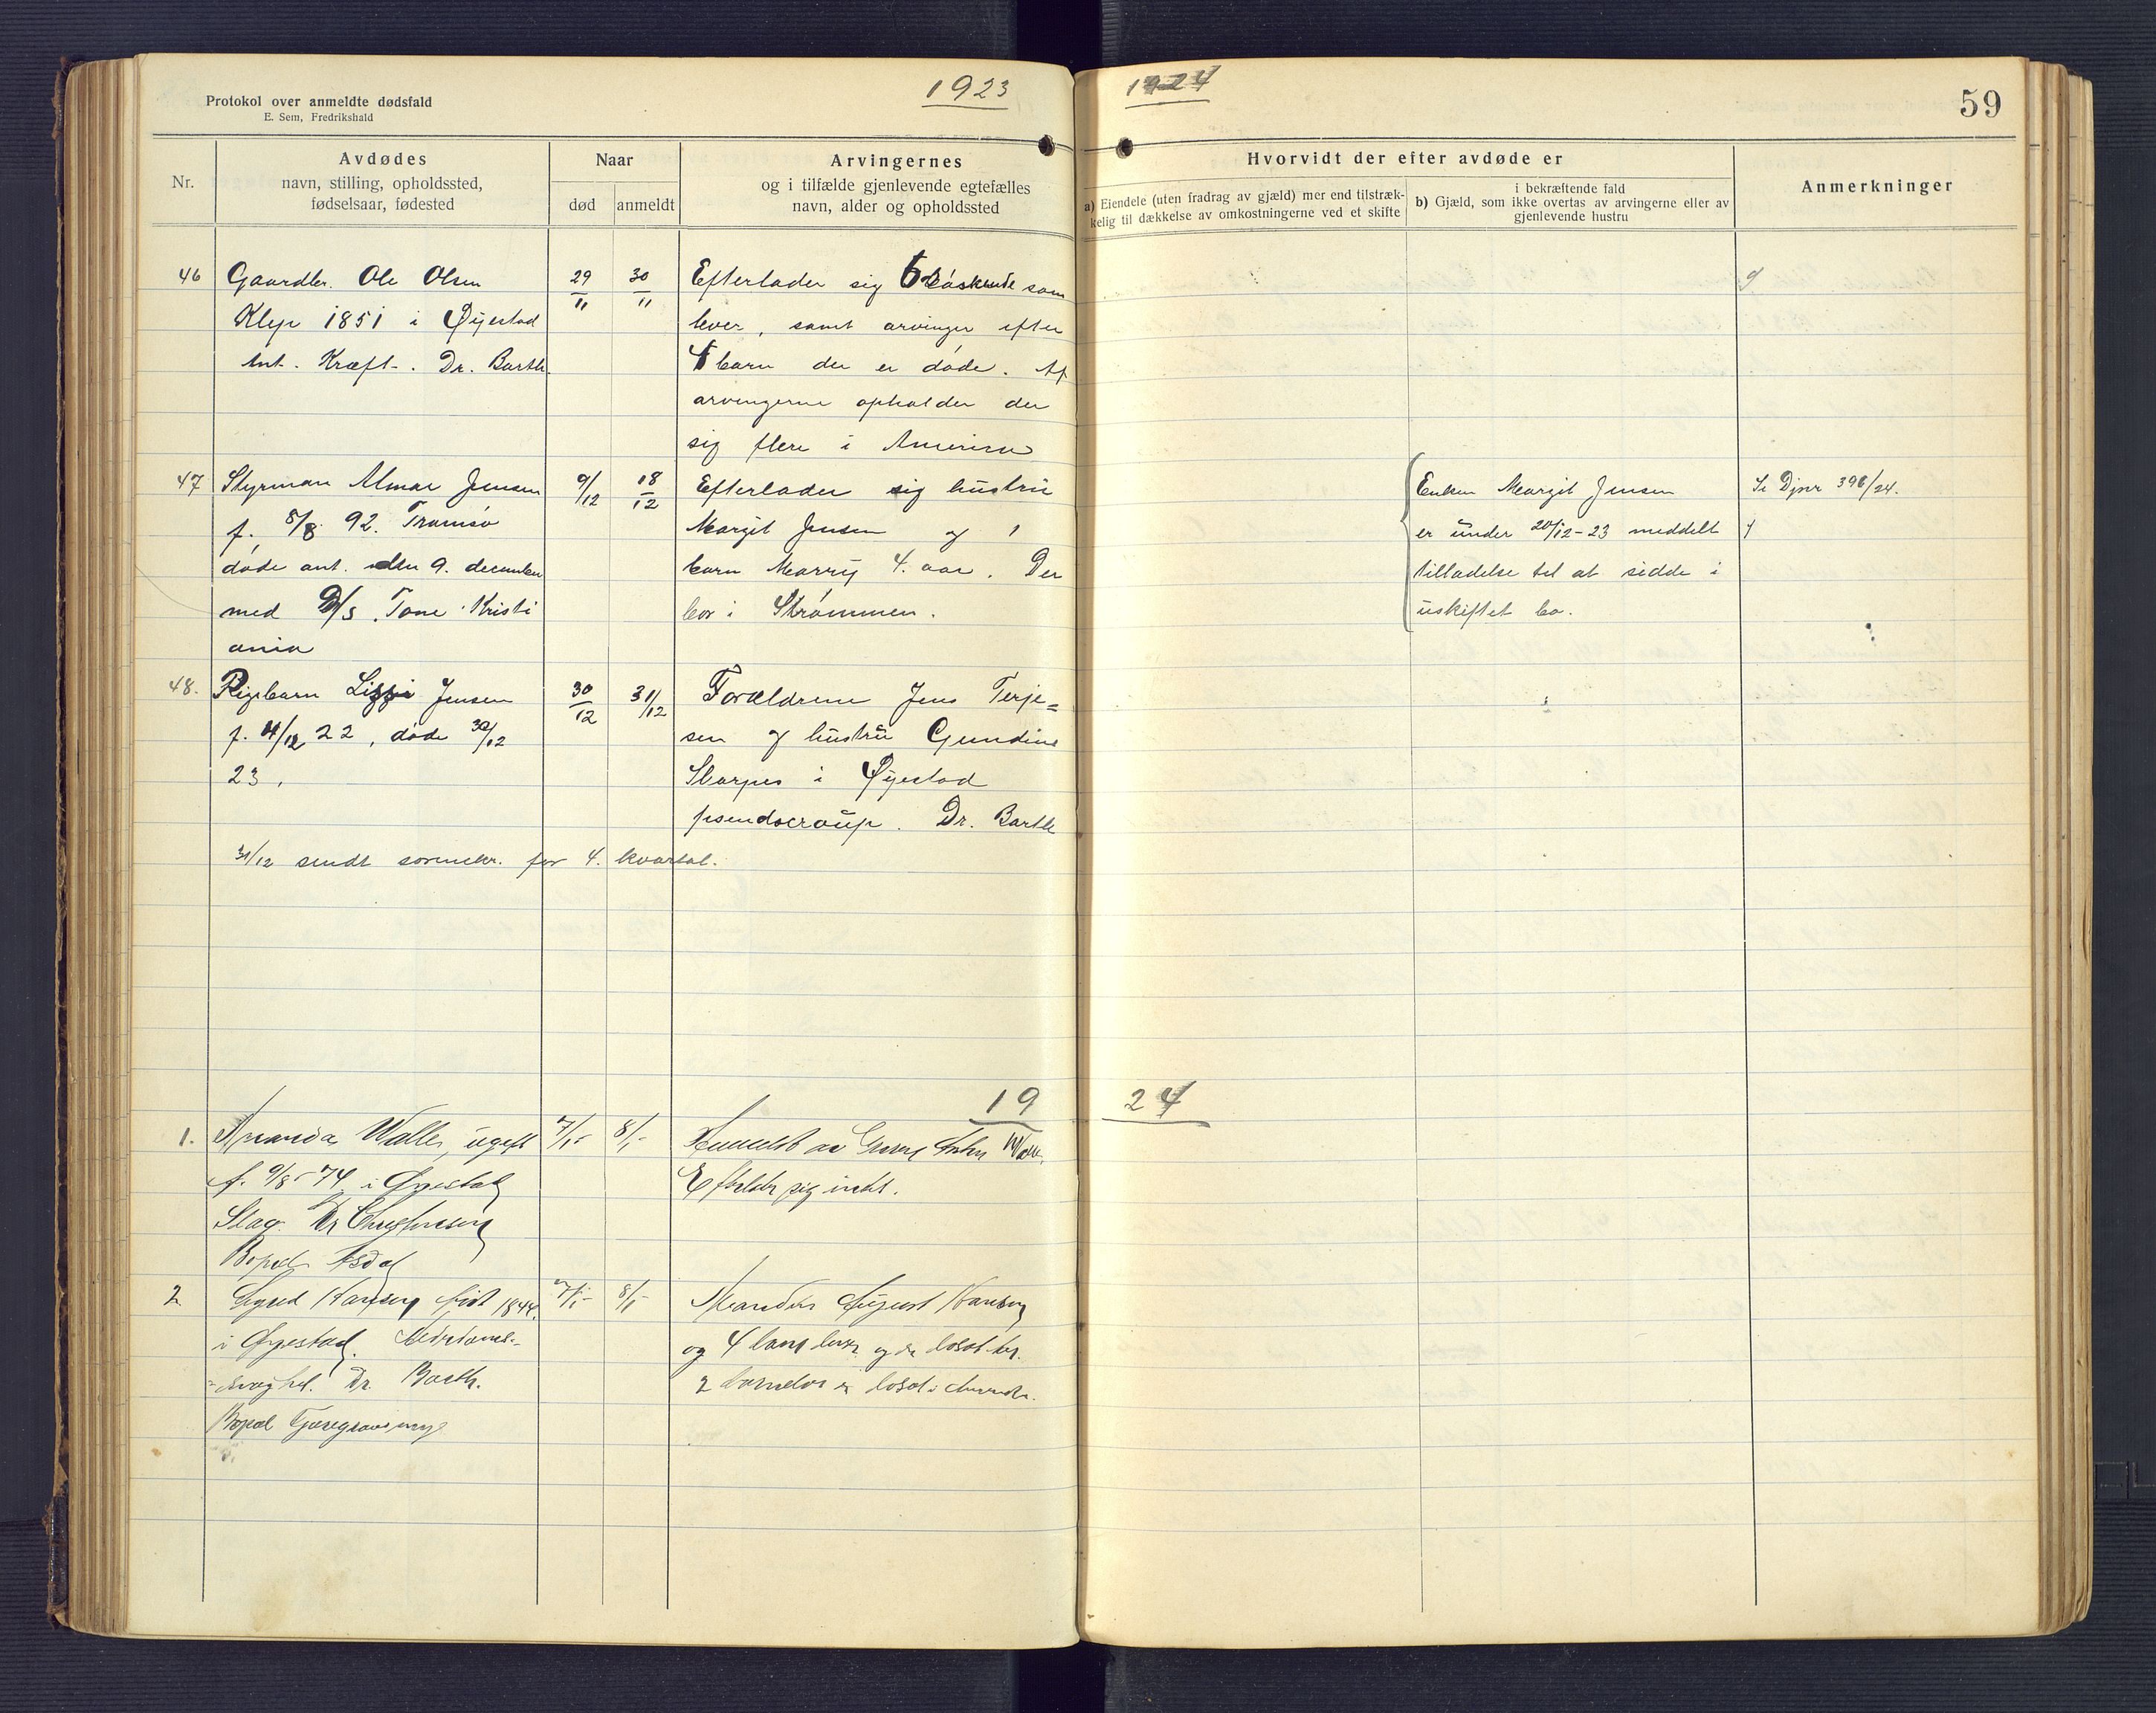 Protokol over anmeldte dødsfald
E. Sem, Fredrikshald
1923
1924
59
Nr.
Avdødes
navn, stilling, opholdssted,
fødselsaar, fødested
Naar
død
anmeldt
Arvingernes
og i tilfælde gjenlevende egtefælles
navn, alder og opholdssted
Hvorvidt der efter avdøde er
a) Eiendele (uten fradrag av gjæld) mer end tilstræk-
kelig til dækkelse av omkostningerne ved et skifte
i bekræftende fald
b) Gjæld, som ikke overtas av arvingerne eller av
gjenlevende hustru
Anmerkninger
46 Gaardbr. Ole Olsen
Klep 1851 i Øyestad
Ant. Kræft. Dr. Barth.
29/11
30/11
Efterlader sig 6 søskende som
lever, samt arvinger efter
barn der er døde. Af
arvingerne opholder der
sig flere i Amerika
47 Styrman Almar Jensen
f. 5/8 92. Tromsø
døde ant. den 9. december
med D/S. Tone Kristi
ania
9/12
18/12
Efterlader sig hustru
Margit Jensen og 1
barn Marry 4. aar. Der
bor i Strømmen.
Enken Margit Jensen
er under 20/12-23 meddelt
tilladelse til at sidde i
uskiftet bo.
Se Djnr 398/24.
48. Pigebarn Lizzi Jensen
f. 4/12 22, døde 30/12
23.
30/12
31/12
Forældrene Jens Terje=
sen og hustru Gundine
Skarpes i Øyestad
pseudocroup. Dr. Barth
31/12 sendt for 4. kvartal.
19 24
1. Amanda Walle, ugift
f. 9/8 74 i Øyestad
Slag. Dr Christensen
Bopæl Asdal
7/1
8/1
Anmeldt av
Efterlader sig intet.
2. Sigrid Hansen født 1844
i Øyestad. Alderdoms-
svaghed. Dr. Barth.
Bopæl
7/1
8/1
August Hansen
og 4 barn lever og er
2 er bosat i